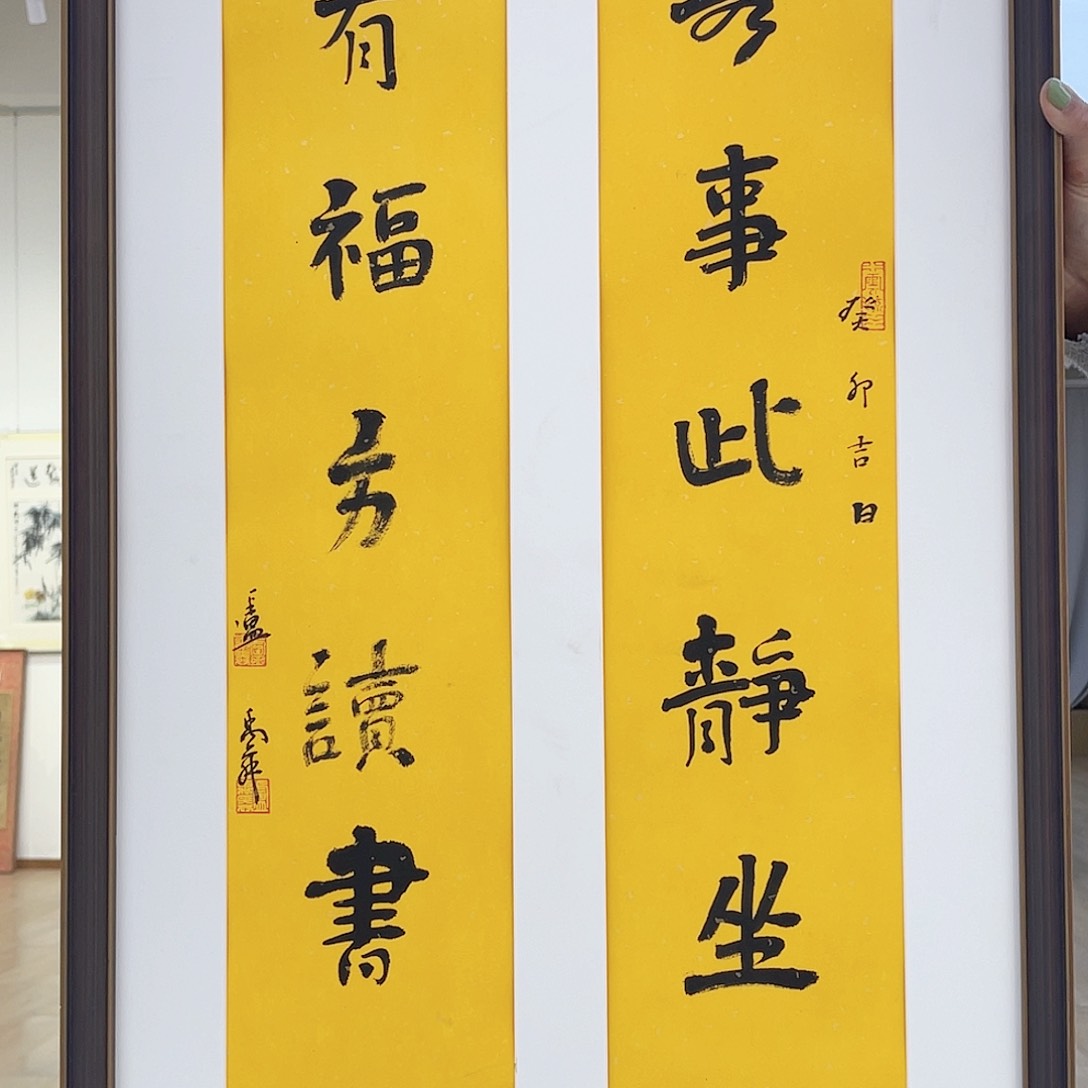 事此靜坐
癸卯吉日
有福方讀書